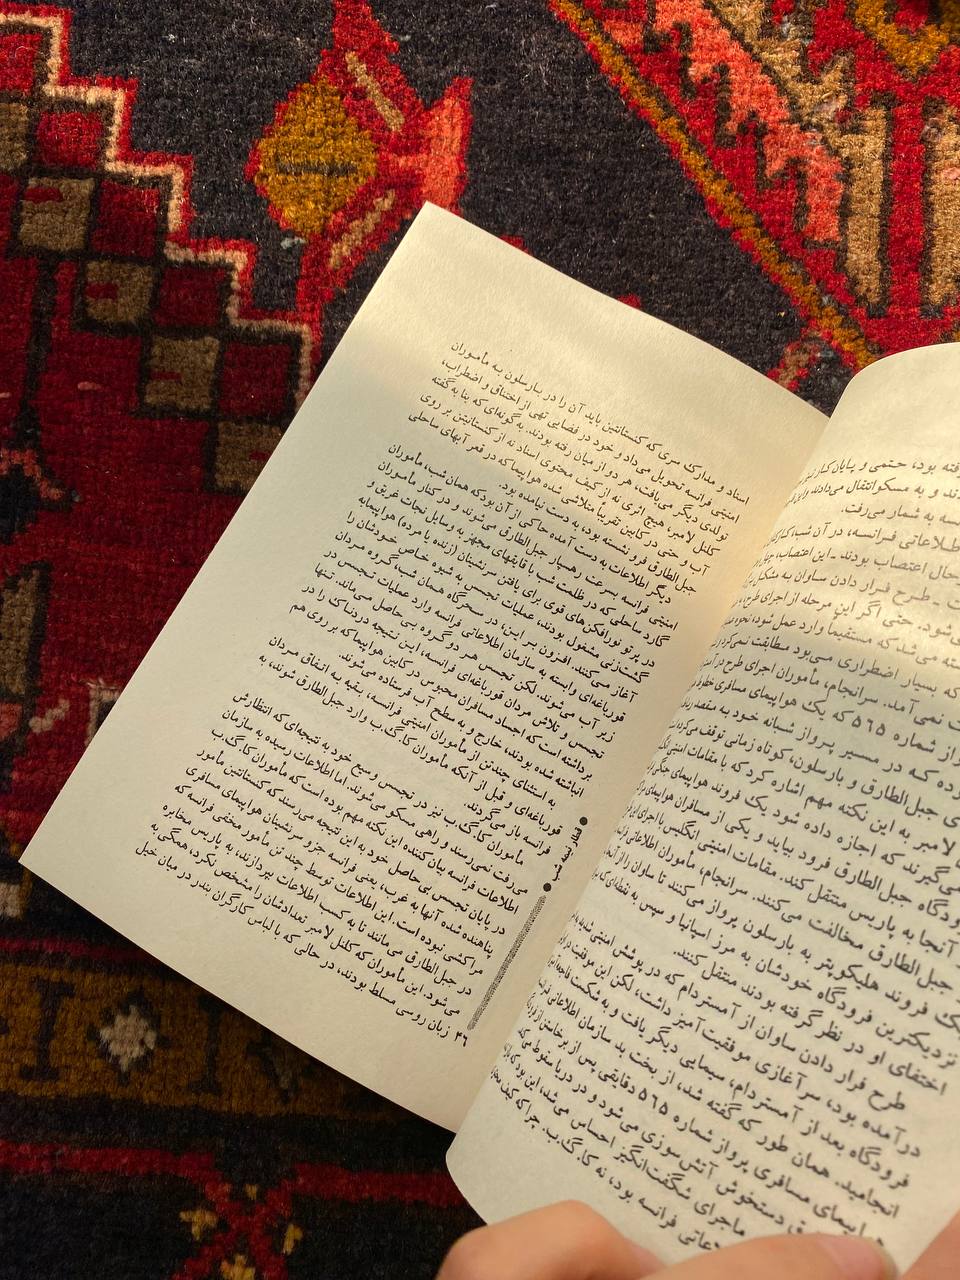 فته بود، حتمی و پایان کار
ند و به مسکو انتقال می‌دادند و این
سه به شمار می‌رفت.
طلاعاتی فرانسه، در آن شب،
رحال اعتصاب بودند ـ این اعتصاب،
ت ـ طرح فرار دادن ساوان به مشکل
ی‌شود. حتی اگر این مرحله از اجرای طرح،
سته می‌شد که مستقیماً وارد عمل شود،
که بسیار اضطراری می‌بود مطابقت نمی‌کرد
ت نمی‌آمد. سرانجام، مأموران اجرای طرح در
از شماره ۵۶۵ که یک هواپیمای مسافری
ده کـه در مسیر پرواز شبانه خـود به مقصد
ی جبل‌الطارق و بارسلون، کوتاه زمانی توقف می‌کرد
لامبر به این نکته مهم اشاره کرد که با مقامات امنیتی
می‌گیرند که اجازه داده شود یک فروند هواپیمای جنگی
ودگاه جبل‌الطارق فرود بیاید و یکی از مسافران هواپیمای
آنجا به پاریس منتقل کند. مقامات امنیتی انگلیس با اجرای این
جبل‌الطارق مخالفت می‌کنند. سرانجام، مأموران اطلاعاتی
یک فروند هلیکوپتر به بارسلون پرواز می‌کنند تا ساوان را از آنجا
نزدیکترین فرودگاه خودشان به مرز اسپانیا و سپس به نقطه‌ای که
اختفای او در نظر گرفته بودند منتقل کنند.
طرح فرار دادن ساوان از آمستردام که در پوشش امنیتی
درآمده بود، سرآغازی موفقیت‌آمیز داشت، لکن این موفقیت در
فرودگاه بعد از آمستردام، سیمایی دیگر یافت و به شکست
انجامید. همان طور که گفته شد، از بخت بد سازمان اطلاعاتی
هواپیمای مسافری پرواز شماره ۵۶۵ دقایقی پس از برخاستن از
دستخوش آتش‌سوزی می‌شود و در دریا سقوط می‌کند
ماجرای شگفت‌انگیز احساس می‌شد، این بود که
فرانسه بود، نه کا.گ.ب. چرا که کیف
اسناد و مدارک سری که کنستانتین باید آن را در بارسلون به مأموران
امنیتی فرانسه تحویل می‌داد و خود در فضایی تهی از اختناق و اضطراب،
تولدی دیگر می‌یافت، هر دو از میان رفته بودند. به گونه‌ای که بنا به گفته
کلنل لامبر هیچ اثری نه از کیف محتوی اسناد نه از کنستانتین بر روی
آب و حتی در کابین تقریباً متلاشی شده هواپیما که در قعر آبهای ساحلی
جبل‌الطارق فرو نشسته بود، به دست نیامده بود.
دیگر اطلاعات به دست آمده حاکی از آن بود که همان شب، مأموران
امنیتی فرانسه بسرعت رهسپار جبل‌الطارق می‌شوند و در کنار مأموران
گارد ساحلی که در ظلمت شب با قایقهای مجهز به وسایل نجات غریق و
در پرتو نورافکن‌های قوی برای یافتن سرنشینان (زنده یا مرده) هواپیما، به
گشت‌زنی مشغول بودند، عملیات تجسس به شیوه خاص خودشان را
آغاز می‌کنند. افزون بر این، در سحرگاه همان شب، گروه مردان
قورباغه‌ای وابسته به سازمان اطلاعاتی فرانسه وارد عملیات تجسس در
زیر آب می‌شوند، لکن تجسس هر دو گروه بی‌حاصل می‌ماند. تنها
تجسس و تلاش مردان قورباغه‌ای فرانسه، این نتیجه دردناک را در
برداشته است که اجساد مسافران محبوس در کابین هواپیما که بر روی هم
انباشته شده بودند، خارج و به سطح آب فرستاده می‌شوند.
به استثنای چند تن از مأموران امنیتی فرانسه، بقیه به اتفاق مردان
قورباغه‌ای و قبل از آنکه مأموران کا.گ.ب وارد جبل الطارق شوند، به
فرانسه باز می‌گردند.
مأموران کا.گ.ب نیز در تجسس وسیع خود به نتیجه‌ای که انتظارش
می‌رفت نمی‌رسند و راهی مسکو می‌شوند. اما اطلاعات رسیده به سازمان
اطلاعات فرانسه بیان‌کننده این نکته مهم بوده است که مأموران کا.گ.ب
در پایان تجسس بی‌حاصل خود به این نتیجه می‌رسند که کنستانتین مأمور
پناهنده شده آنها به غرب، یعنی فرانسه جزو سرنشینان هواپیمای مسافری
مراکشی نبوده است. این اطلاعات توسط چند تن مأمور مخفی فرانسه که
در جبل‌الطارق می‌مانند تا به کسب اطلاعات بپردازند، به پاریس مخابره
می‌شود. این مأموران که کلنل لامبر تعدادشان را مشخص نکرد، همگی به
زبان روسی مسلط بودند، در حالی که با لباس کارگران بندر در میان خیل
۴۶
قطار نیمه شب